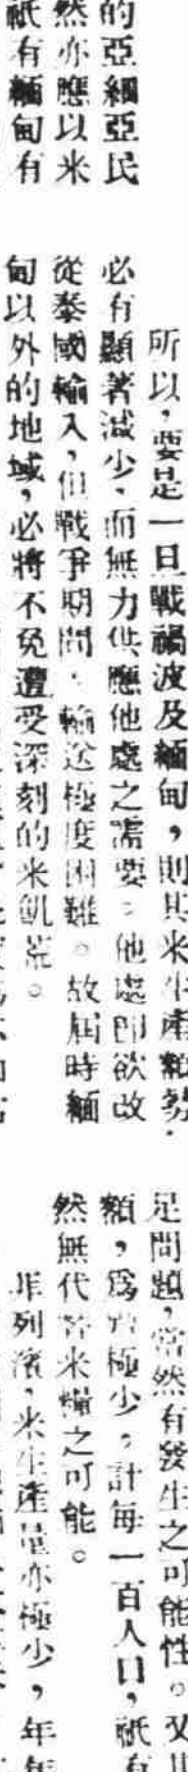 的亞細亞民
然亦應以米
祇有緬甸有
所以,要是一旦戰禍波及緬甸,則其米生產額勢
必有顯著減少,而無力供應他處之需要。他處即欲改
從泰國輸入,但戰爭期間,輸送極度困難。故屆時緬
甸以外的地域,必將不免遭受深刻的米飢荒。
足問題,當然有發生之可能性。又
額,爲極少,計每一百人口,祇有
然無代替米糧之可能。
菲列濱,米生產量亦極少,年